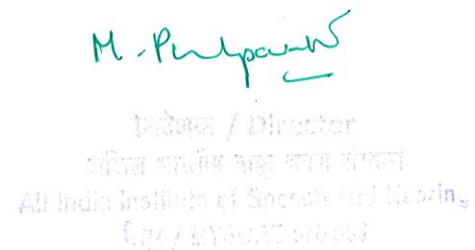 M. Pushpavathi
निदेशक / Director
अखिल भारतीय वाक् श्रवण संस्थान
All India Institute of Speech and Hearing
/ MYSORE-570 006